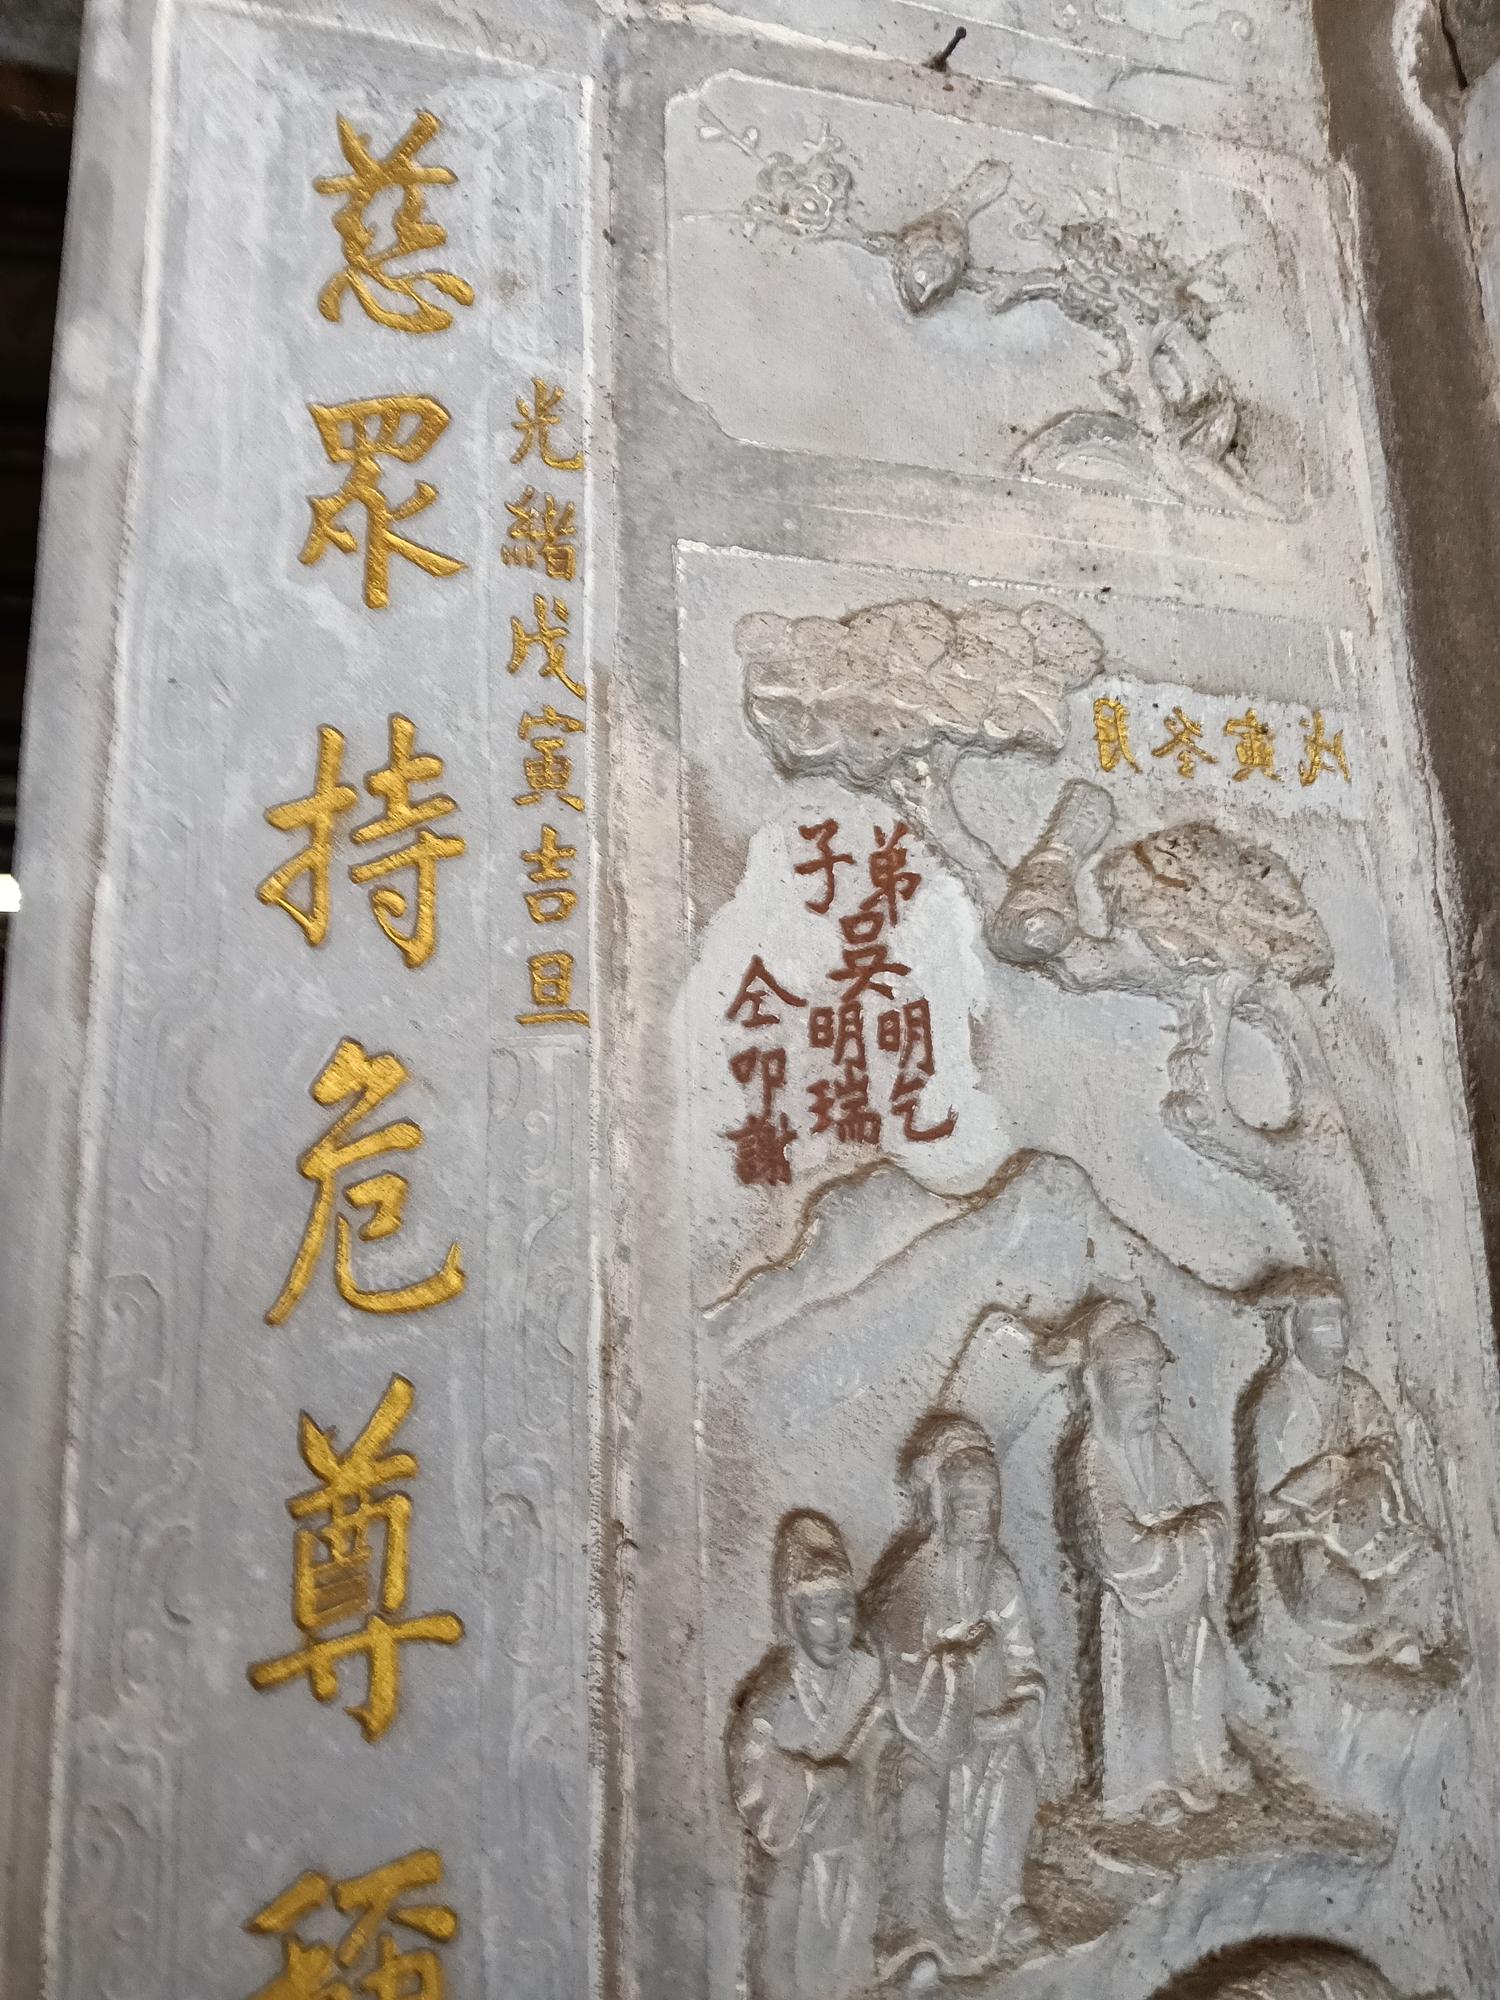 戊寅冬月
弟子
吳
明乞
明瑞
仝叩謝
光緒戊寅吉旦
慈眾持危尊